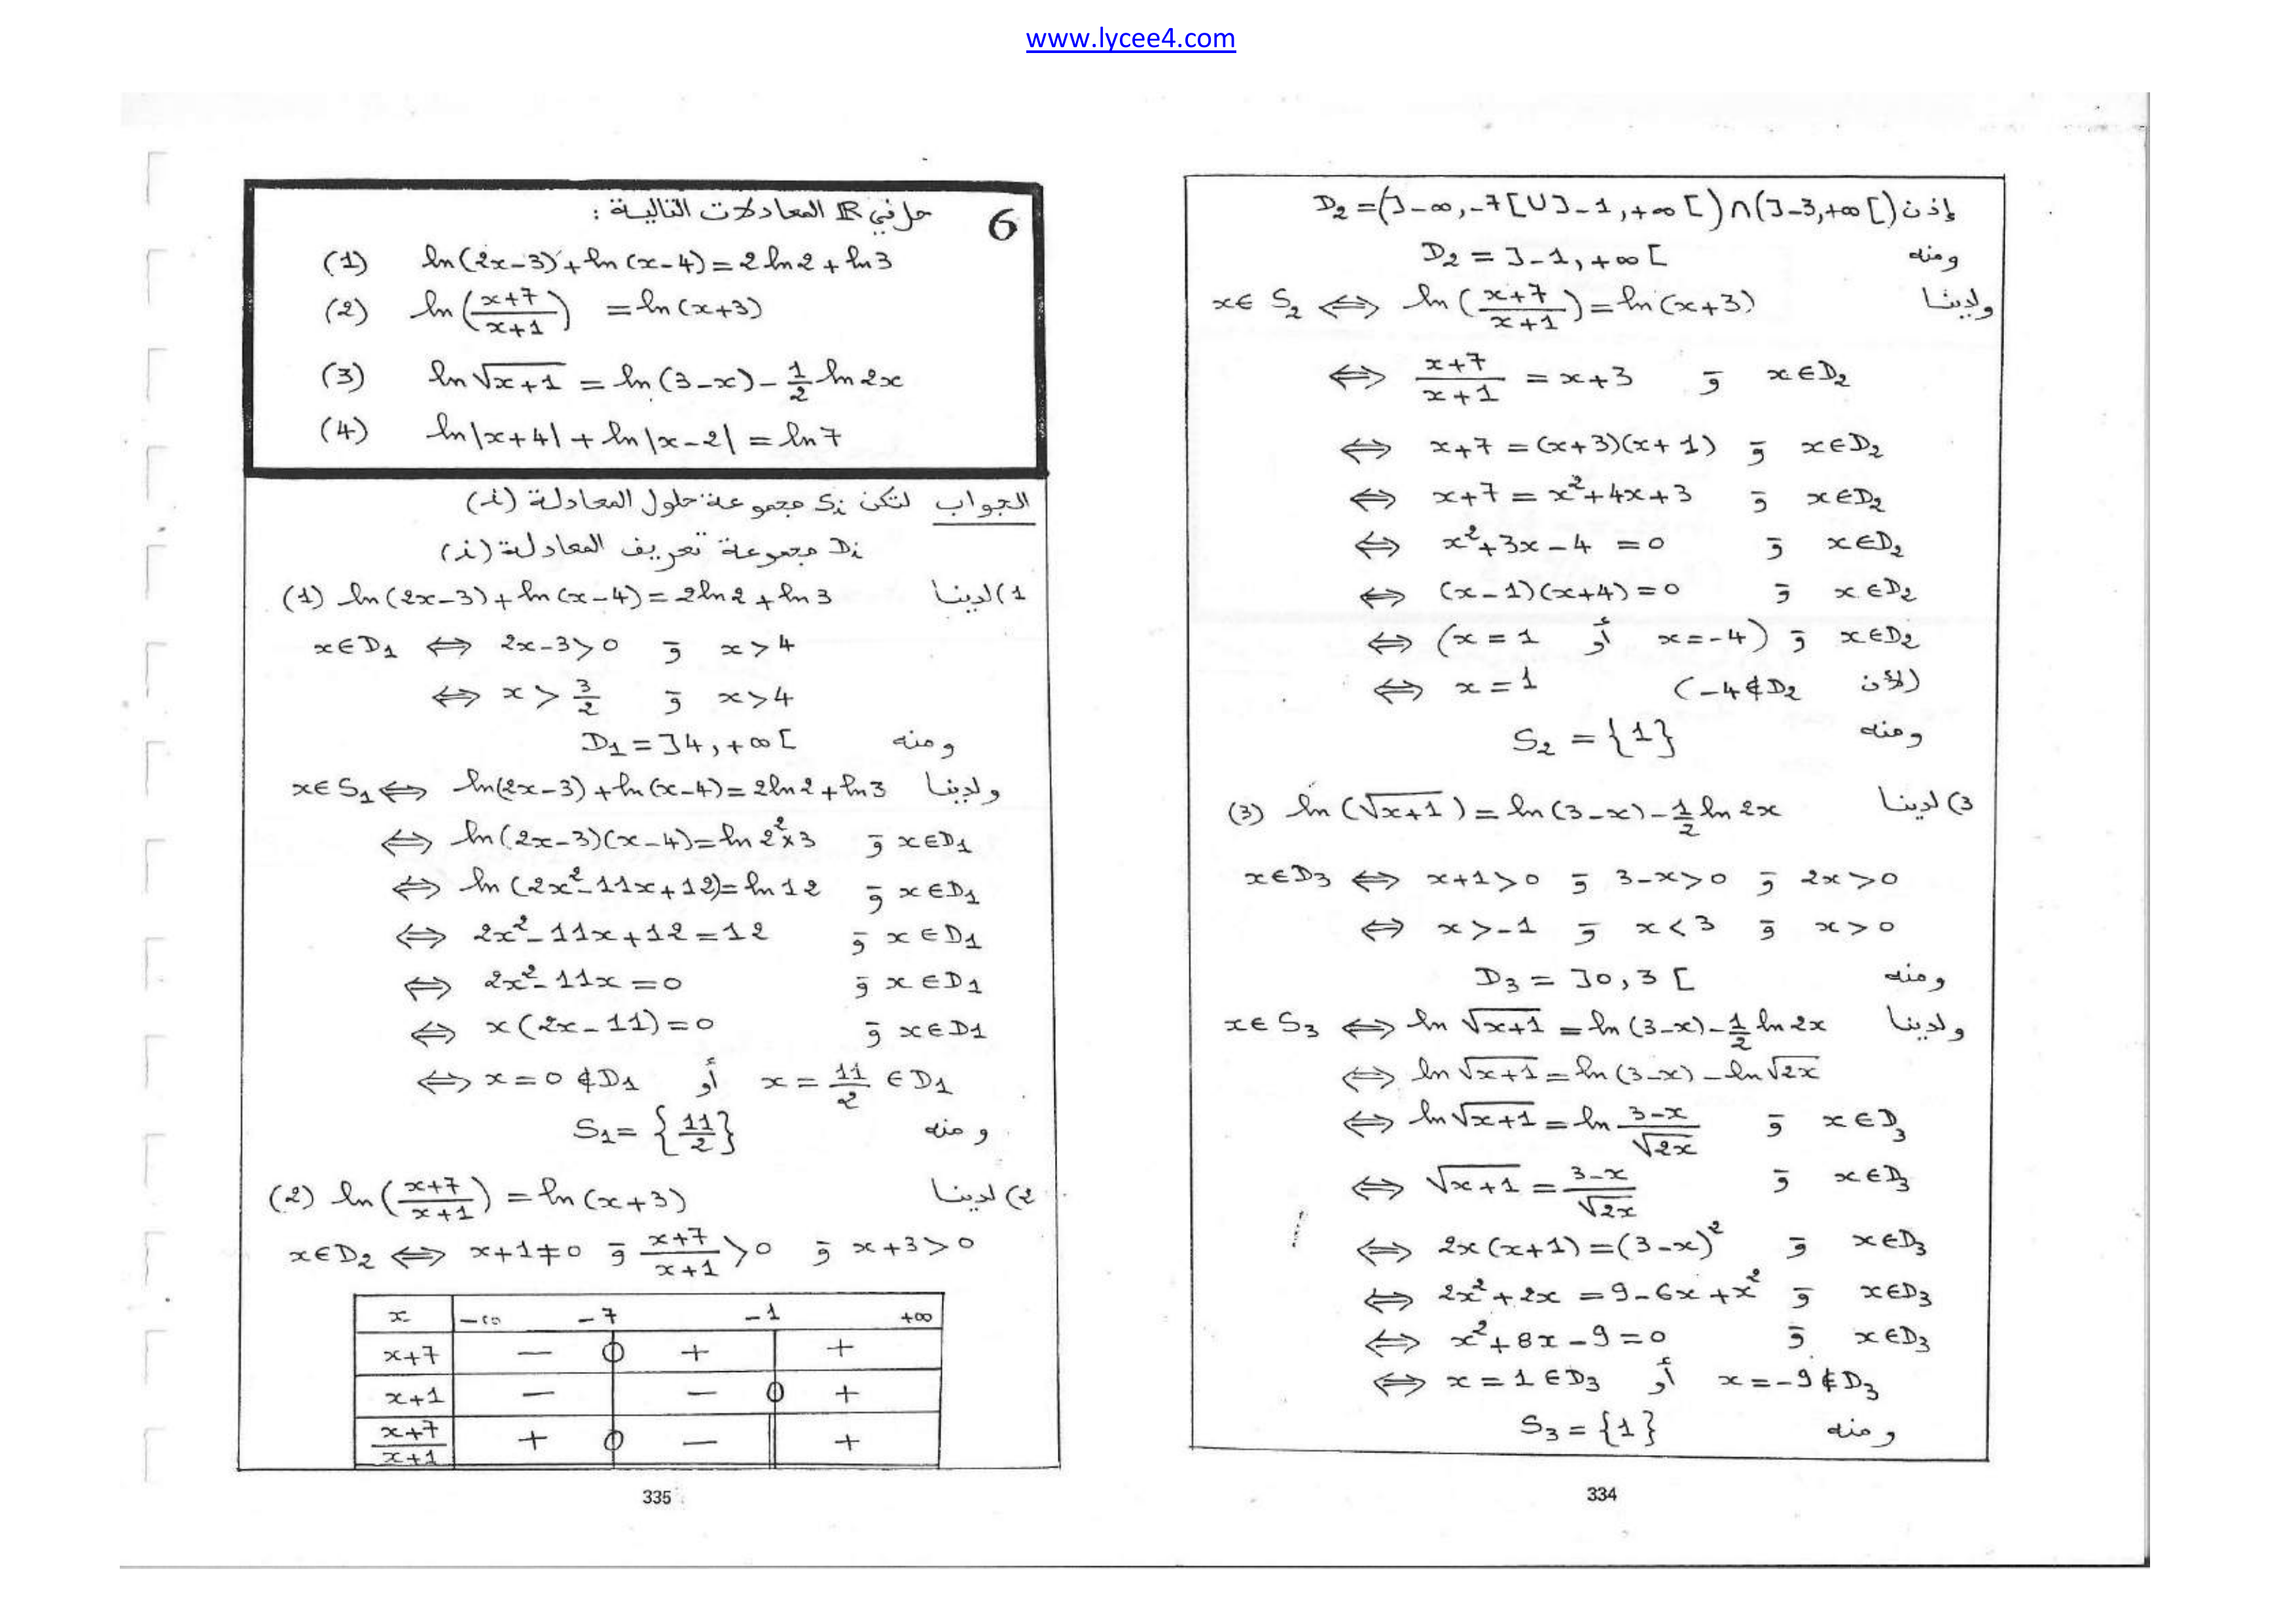 www.lycee4.com
6 حل في ℝ المعادلات التالية :
(1) ln(2x-3)+ln(x-4)=2ln2+ln3
(2) ln(\frac{x+7}{x+1}) =ln(x+3)
(3) ln√(x+1) = ln(3-x)-\frac{1}{2}ln2x
(4) ln|x+4|+ln|x-2|=ln7
الجواب لتكن Si مجموعة حلول المعادلة (i)
Di مجموعة تعريف المعادلة (i)
1) لدينا (1) ln(2x-3)+ln(x-4)=2ln2+ln3
x∈D1 ⟺ 2x-3>0 و x>4
⟺ x>\frac{3}{2} و x>4
ومنه D1=]4,+∞[
ولدينا x∈S1⟺ ln(2x-3)+ln(x-4)=2ln2+ln3
⟺ ln(2x-3)(x-4)=ln2²×3 و x∈D1
⟺ ln(2x²-11x+12)=ln12 و x∈D1
⟺ 2x²-11x+12=12 و x∈D1
⟺ 2x²-11x=0 و x∈D1
⟺ x(2x-11)=0 و x∈D1
⟺ x=0∉D1 أو x=\frac{11}{2}∈D1
ومنه S1={\frac{11}{2}}
2) لدينا (2) ln(\frac{x+7}{x+1})=ln(x+3)
x∈D2 ⟺ x+1≠0 و \frac{x+7}{x+1}>0 و x+3>0
x -∞ -7 -1 +∞
x+7 - 0 + +
x+1 - - 0 +
\frac{x+7}{x+1} + 0 - || +
335
إذن D2=(]-∞,-7[∪]-1,+∞[)∩(]-3,+∞[)
ومنه D2=]-1,+∞[
ولدينا x∈S2 ⟺ ln(\frac{x+7}{x+1})=ln(x+3)
⟺ \frac{x+7}{x+1}=x+3 و x∈D2
⟺ x+7=(x+3)(x+1) و x∈D2
⟺ x+7=x²+4x+3 و x∈D2
⟺ x²+3x-4=0 و x∈D2
⟺ (x-1)(x+4)=0 و x∈D2
⟺ (x=1 أو x=-4) و x∈D2
⟺ x=1 (لأن -4∉D2)
ومنه S2={1}
3) لدينا (3) ln(√(x+1))=ln(3-x)-\frac{1}{2}ln2x
x∈D3 ⟺ x+1>0 و 3-x>0 و 2x>0
⟺ x>-1 و x<3 و x>0
ومنه D3=]0,3[
ولدينا x∈S3 ⟺ ln√(x+1)=ln(3-x)-\frac{1}{2}ln2x
⟺ ln√(x+1)=ln(3-x)-ln√(2x)
⟺ ln√(x+1)=ln\frac{3-x}{√(2x)} و x∈D3
⟺ √(x+1)=\frac{3-x}{√(2x)} و x∈D3
⟺ 2x(x+1)=(3-x)² و x∈D3
⟺ 2x²+2x=9-6x+x² و x∈D3
⟺ x²+8x-9=0 و x∈D3
⟺ x=1∈D3 أو x=-9∉D3
ومنه S3={1}
334